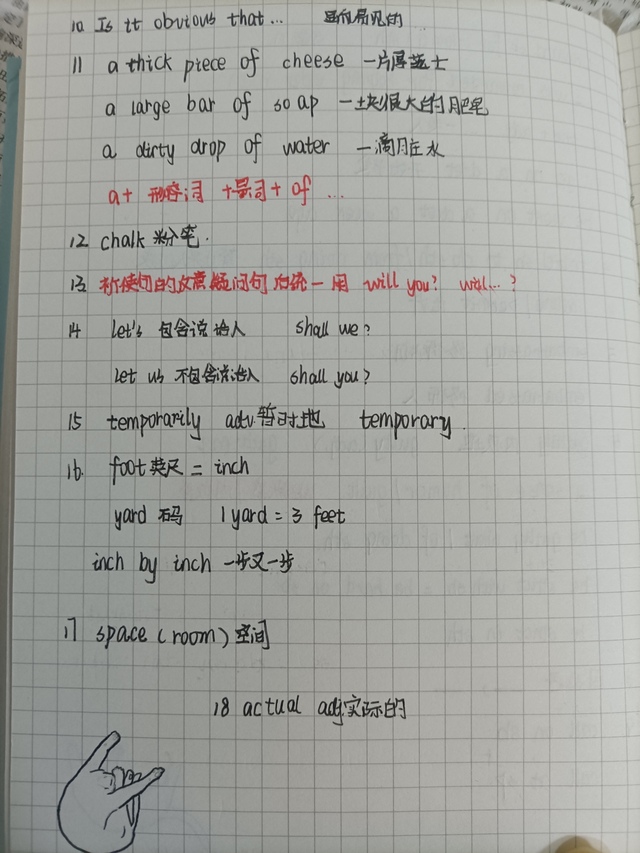 10 Is it obvious that... 显而易见的
11 a thick piece of cheese 一片厚芝士
a large bar of soap 一块很大的肥皂
a dirty drop of water 一滴脏水
a+ 形容词 +量词+ of ...
12 chalk 粉笔.
13 祈使句的反意疑问句 为统一用 will you? will...?
14 Let's 包含说话人 shall we?
Let us 不包含说话人 shall you?
15 temporarily adv.暂时地 temporary.
16. foot英尺 = inch
yard 码 1 yard = 3 feet
inch by inch 一步又一步
17 space (room) 空间
18 actual adj实际的